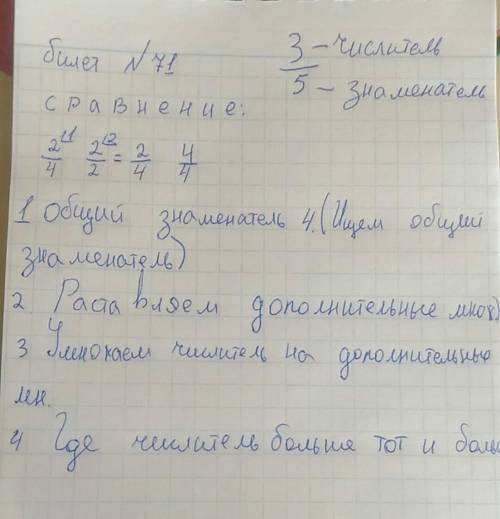 билет №71
3 – числитель
5 – знаменатель
сравнение:
2/4 2/2 = 2/4 4/4
1 Общий знаменатель 4. (Ищем общий
знаменатель)
2. Раставляем дополнительные множ)
3 Умножаем числитель на дополнительные
мн.
4 Где числитель больше тот и боль